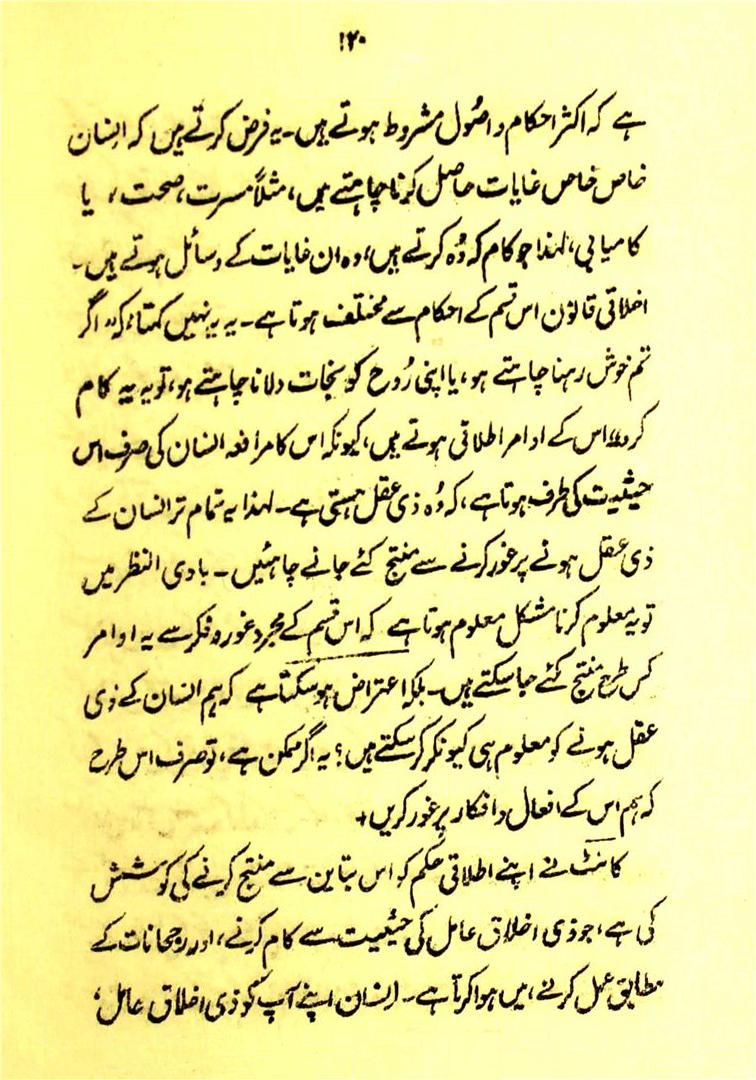 ۱۲۰
ہے کہ اکثر احکام و اصُول مشروط ہوتے ہیں۔ یہ فرض کرتے ہیں کہ انسان
خاص خاص غایات حاصل کرنا چاہتے ہیں، مثلاً مسرت، صحت، یا
کامیابی، لہذا جو کام کہ وُہ کرتے ہیں، وہ ان غایات کے وسائل ہوتے ہیں۔
اخلاقی قانون اس قسم کے احکام سے مختلف ہوتا ہے۔ یہ یہ نہیں کہتا، کہ "اگر
تم خوش رہنا چاہتے ہو، یا اپنی رُوح کو نجات دلانا چاہتے ہو، تو یہ یہ کام
کرو" اس کے اوامر اطلاقی ہوتے ہیں، کیونکہ اس کا مرافعہ انسان کی صرف اس
حیثیت کی طرف ہوتا ہے، کہ وُہ ذی عقل ہستی ہے۔ لہذا یہ تمام تر انسان کے
ذی عقل ہونے پر غور کرنے سے منتج کئے جانے چاہئیں۔ بادی النظر میں
تو یہ معلوم کرنا مشکل معلوم ہوتا ہے کہ اس قسم کے مجرد غور و فکر سے یہ اوامر
کس طرح منتج کئے جا سکتے ہیں۔ بلکہ اعتراض ہو سکتا ہے کہ ہم انسان کے ذی
عقل ہونے کو معلوم ہی کیونکر کر سکتے ہیں؟ یہ اگر ممکن ہے، تو صرف اس طرح
کہ ہم اس کے افعال و افکار پر غور کریں+
کانٹ نے اپنے اطلاقی حکم کو اس تباین سے منتج کرنے کی کوشش
کی ہے، جو ذی اخلاق عامل کی حیثیت سے کام کرنے، اور رجحانات کے
مطابق عمل کرنے، میں ہوا کرتا ہے۔ انسان اپنے آپ کو ذی اخلاق عامل،